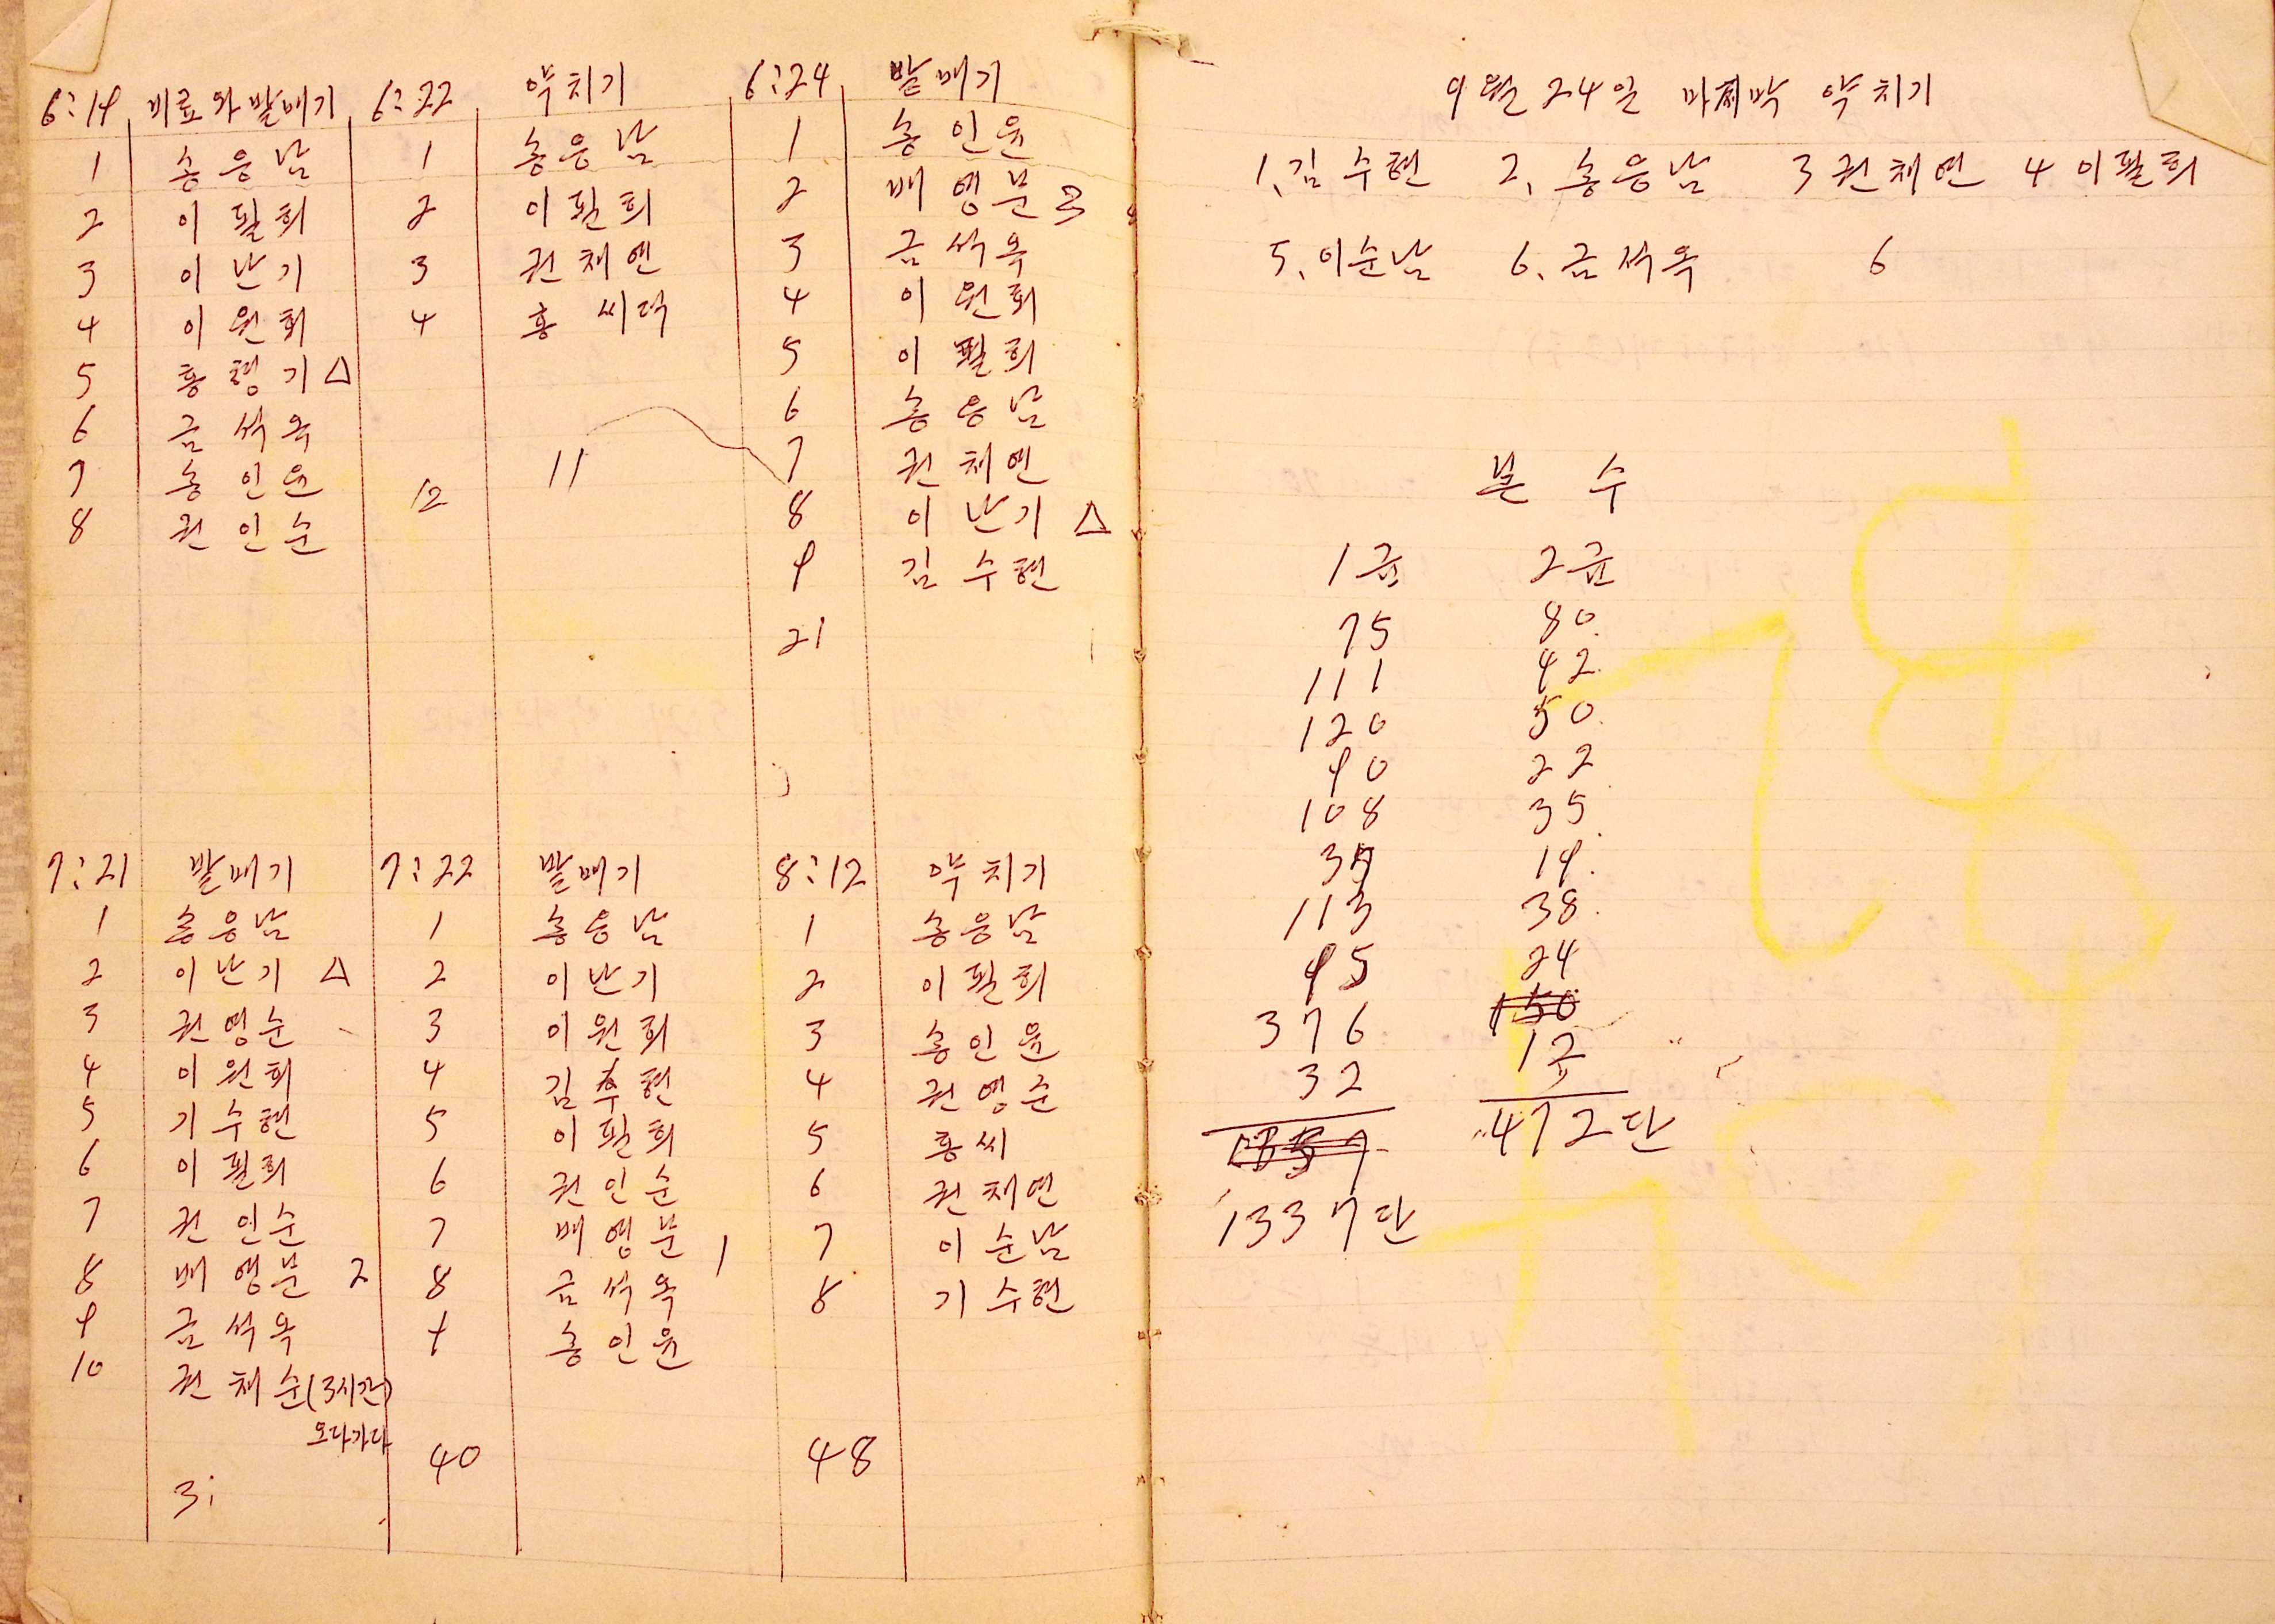 6:19 비료와 발매기
1 송응남
2 이필희
3 이난기
4 이원희
5 홍형기 △
6 금석옥
7 송인윤
8 권인순
6:22 약치기
1 송응남
2 이필희
3 권채연
4 홍씨댁
12 11
6:24 밭매기
1 송인윤
2 배영분
3 금석옥
4 이원희
5 이필희
6 송응남
7 권채연
8 이난기 △
9 김수현
21
7:21 발매기
1 송응남
2 이난기 △
3 권영순
4 이원희
5 기수현
6 이필희
7 권인순
8 배영분 2
9 금석옥
10 권채순(3시간)
오다가다
31
7:22 발매기
1 송응남
2 이난기
3 이원희
4 김수현
5 이필희
6 권인순
7 배영분 1
8 금석옥
9 송인윤
40
8:12 약치기
1 송응남
2 이필희
3 송인윤
4 권영순
5 홍씨
6 권채연
7 이순남
8 기수현
48
9월 24일 마지막 약치기
1, 김수현 2, 송응남 3 권채연 4 이필희
5, 이순남 6, 금석옥 6
본 수
1급 2급
75 80
111 42
120 50
90 22
108 35
35 19
113 38
95 24
376
32
472단
1337단